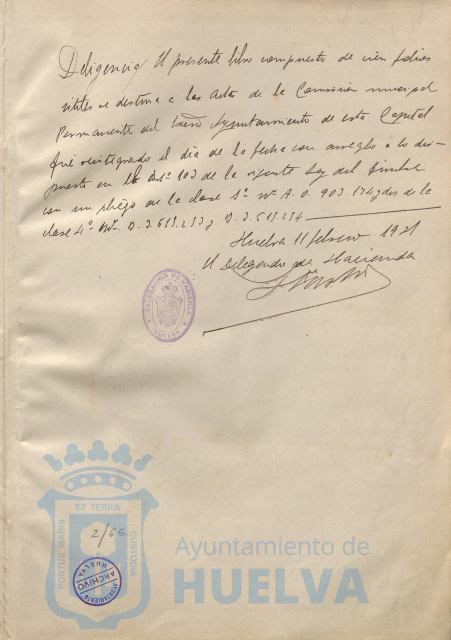 Diligencia El presente libro compuesto de cien folios
útiles se destina a las Actas de la Comisión municipal
Permanente del Excmo Ayuntamiento de esta Capital
fué reintegrado el día de la fecha con arreglo a lo dis-
puesto en el Artº 103 de la vigente Ley del Timbre
con un pliego de la clase 1ª Nº A. 0. 903.174 y dos de la
clase 4ª Nº. B.
Huelva 11 febrero 1931
El Delegado de Hacienda
DELEGACION DE HACIENDA
HUELVA
ET TERRÆ
PORTUS MARIS
CUSTODIA
2/65
AYUNTAMIENTO
ARCHIVO
HUELVA
Ayuntamiento de
HUELVA